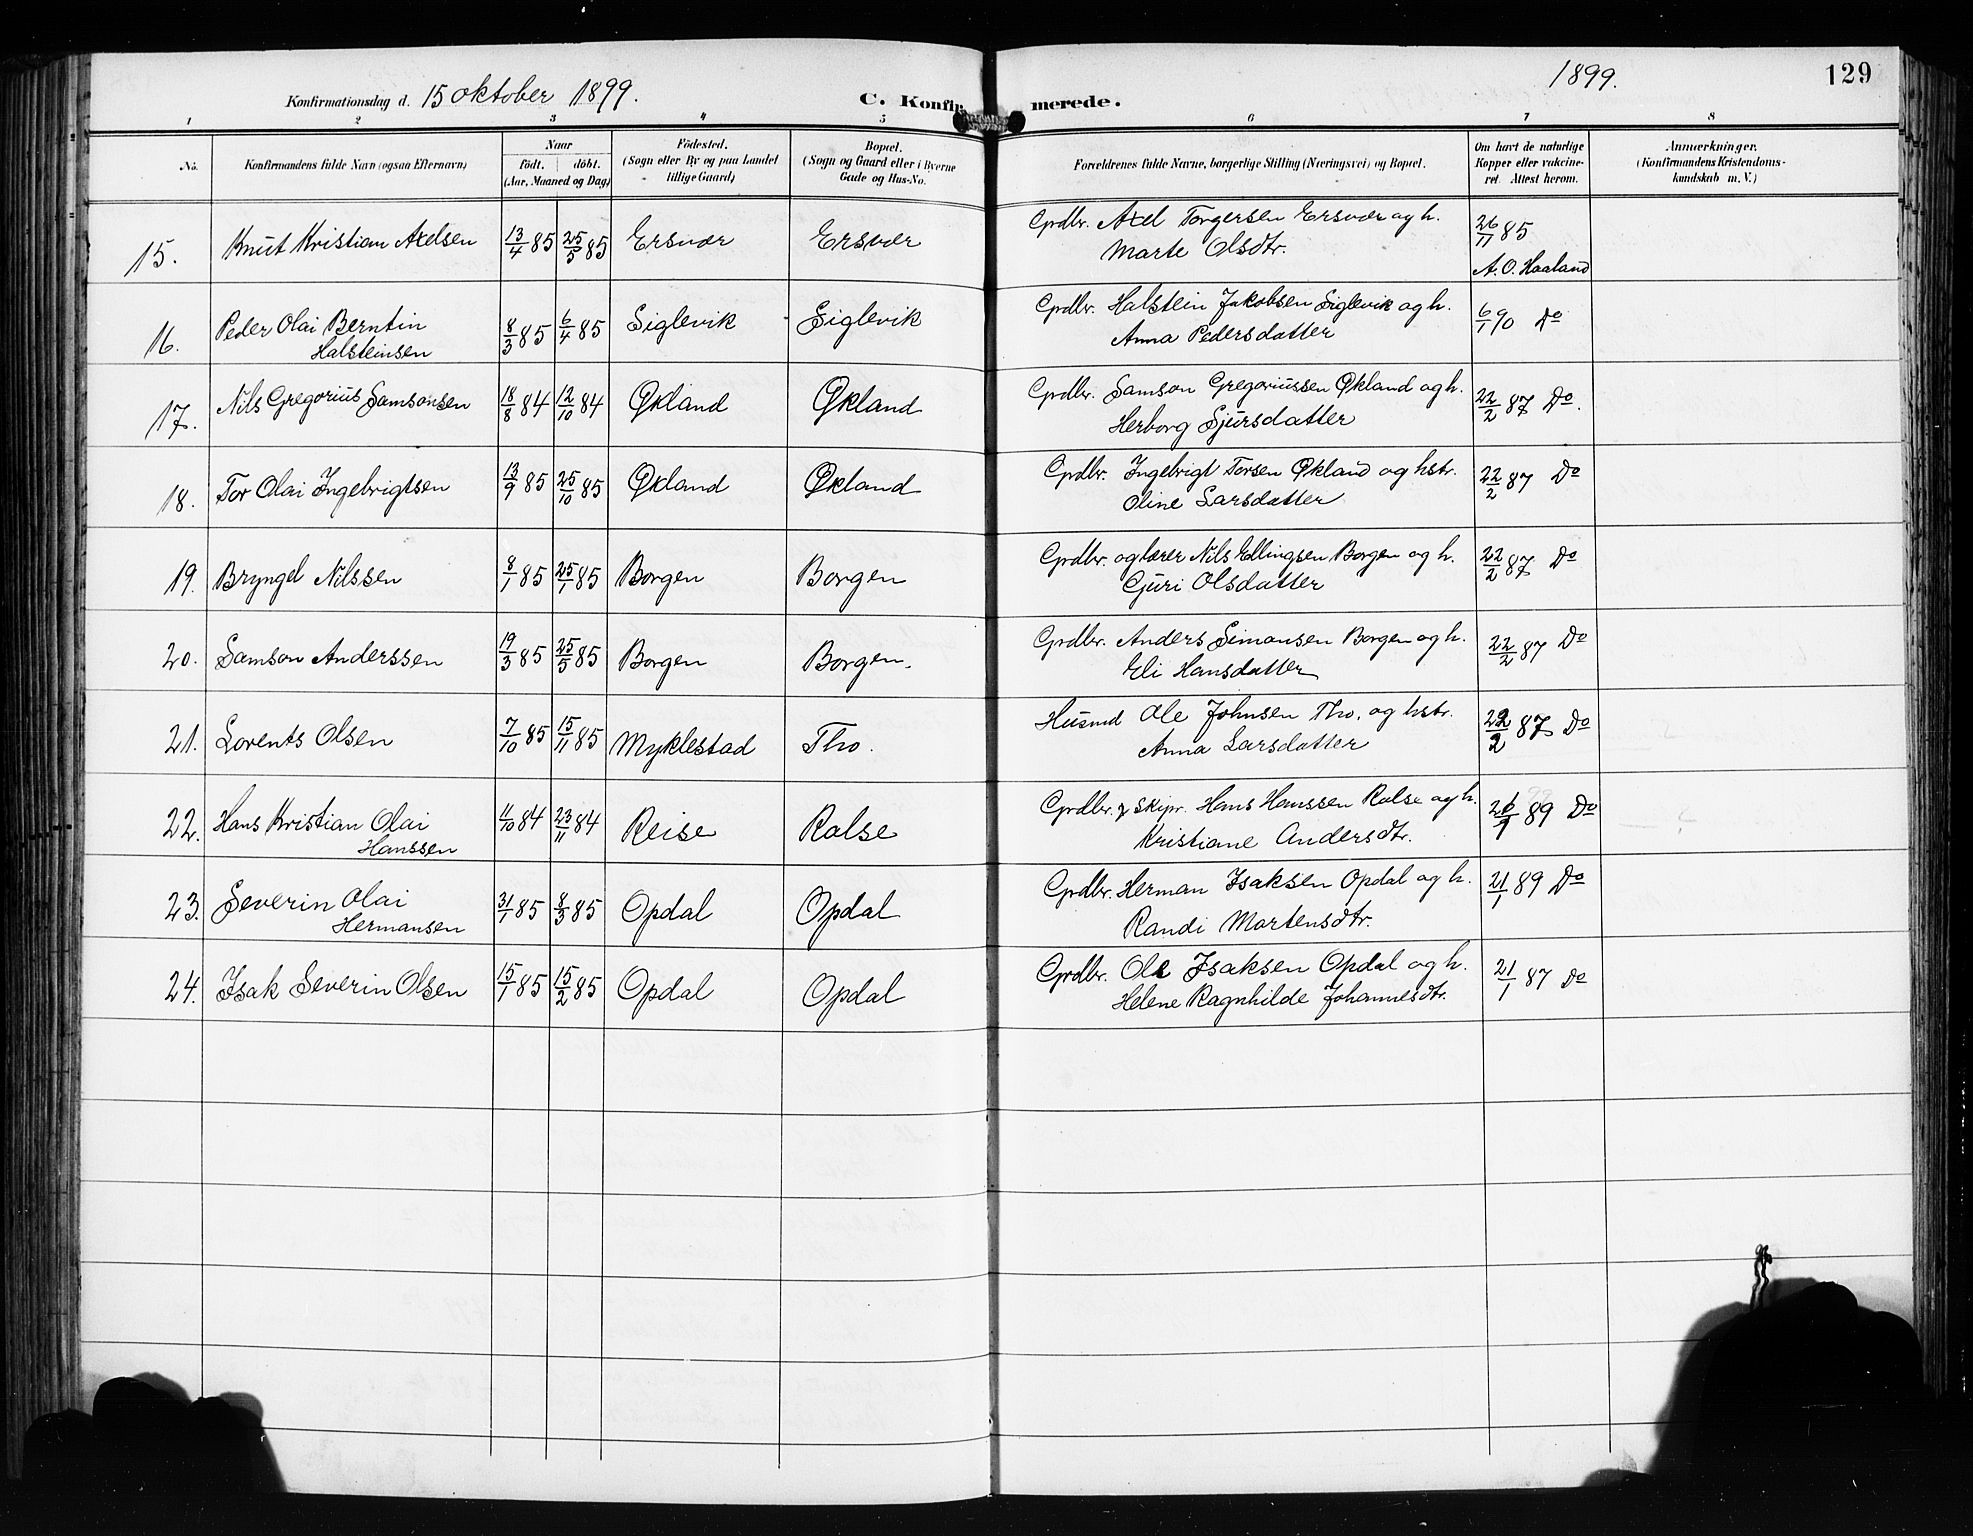 Konfirmationsdag d. 15 oktober 1899.
C. Konfirmerede.
1899.
129
1 2 3 4 5 6 7 8
No.
Konfirmandens fulde Navn (ogsaa Efternavn)
Naar
födt. döbt.
(Aar, Maaned og Dag)
Födested.
(Sogn eller By og paa Landet
tillige Gaard)
Bopæl.
(Sogn og Gaard eller i Byerne
Gade og Hus-No.
Forældrenes fulde Navne, borgerlige Stilling (Næringsvei) og Bopæl.
Om havt de naturlige
Kopper eller vakcine-
ret. Attest herom.
Anmærkninger.
(Konfirmandens Kristendoms-
kundskab m. V.)
15. Knut Kristian Axelsen 13/4 85 25/5 85 Ersvær Ersvær Grdbr. Axel Torgersen Ersvær og h. 26/11 85
Marte Olsdtr. A. O. Haaland
16. Peder Olai Berntin 8/3 85 6/4 85 Siglevik Siglevik Grdbr. Halstein Jakobsen Siglevik og h. 6/1 90 Do
Halsteinsen Anna Pedersdatter
17. Nils Gregorius Samsonsen 18/8 84 12/10 84 Økland Økland Grdbr. Samson Gregoriussen Økland og h. 22/2 87 Do.
Herborg Sjursdatter
18. Tor Olai Ingebrigtsen 13/9 85 25/10 85 Økland Økland Grdbr. Ingebrigt Torsen Økland og hstr. 22/2 87 Do
Oline Larsdatter
19. Bryngel Nilssen 8/1 85 25/1 85 Borgen Borgen Grdbr. og lærer Nils Ellingsen Borgen og h. 22/2 87 Do
Guri Olsdatter
20. Samson Anderssen 19/3 85 25/5 85 Borgen Borgen. Grdbr. Anders Simonsen Borgen og h. 22/2 87 Do
Eli Hansdatter
21. Lorents Olsen 7/10 85 15/11 85 Myklestad Tho. Husmd Ole Johnsen Tho. og hstr. 22/2 87 Do
Anna Larsdatter
22. Hans Kristian Olai 11/10 84 23/11 84 Reise Ralse Grdbr. & Skipr. Hans Hanssen Ralse og h. 89 Do
Hanssen Kristiane Andersdtr.
23. Severin Olai 31/1 85 8/3 85 Opdal Opdal Grdbr. Herman Isaksen Opdal og h. 21/1 89 Do
Hermansen Randi Mortensdtr.
24. Isak Severin Olsen 15/1 85 15/2 85 Opdal Opdal Grdbr. Ole Isaksen Opdal og h. 21/1 87 Do
Helene Ragnhilde Johannesdtr.